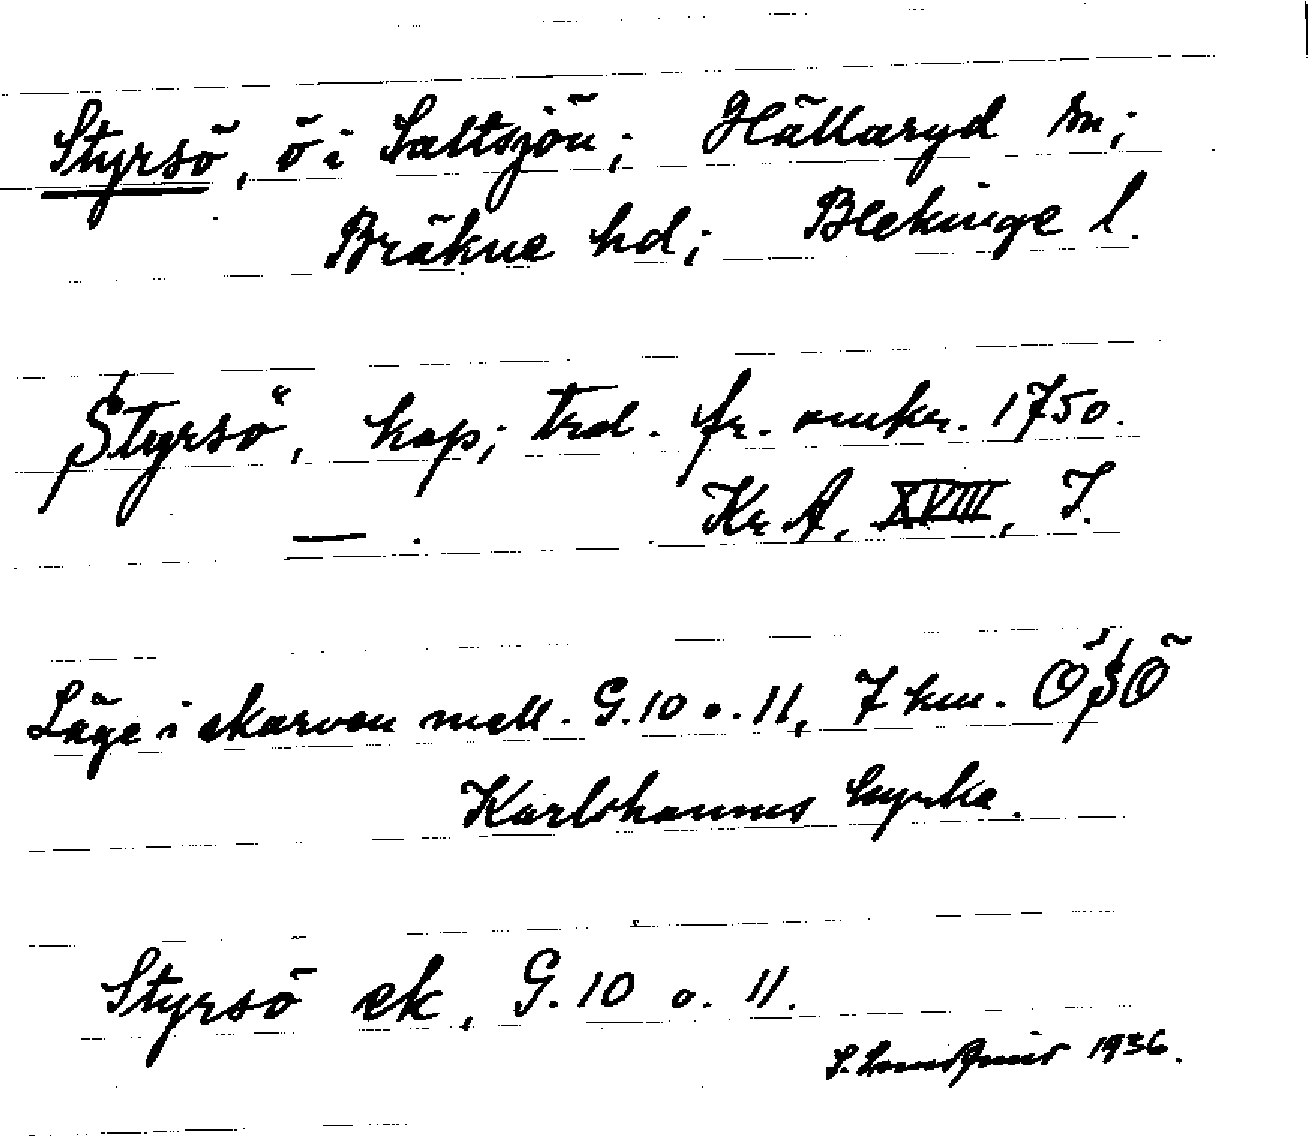 Styrsö, ö i Saltsjön; Hällaryd sn;
Bräkne hd; Blekinge l.
Styrsö, kop; trol. fr. omkr. 1750.
— . Kr A, XVIII, 7.
Läge i skarven mell. G.10 o. 11, 7 km. OSO
Karlshamns kyrka.
Styrsö ek, G. 10 o. 11.
1936.